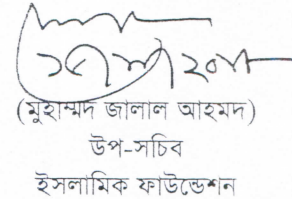 (মুহাম্মদ জালাল আহমদ)
উপ-সচিব
ইসলামিক ফাউন্ডেশন